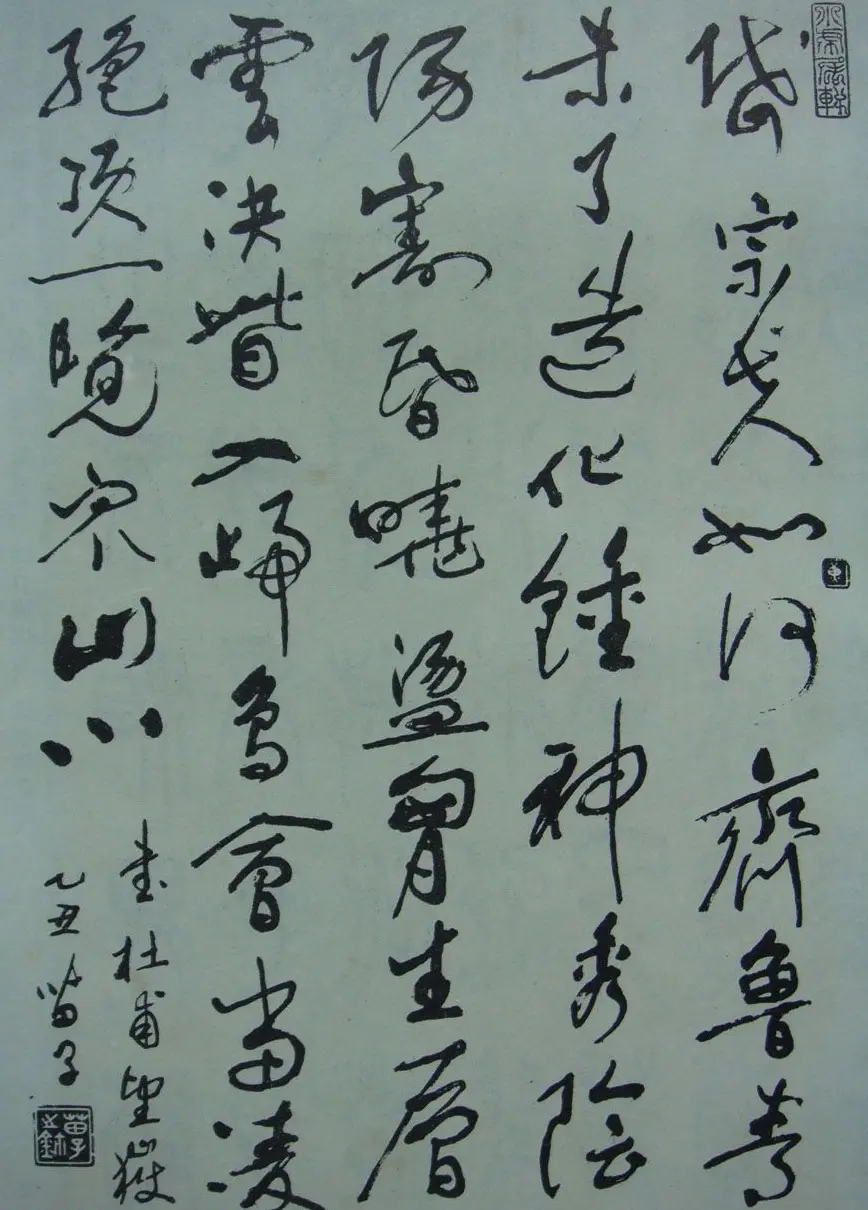 岱宗夫如何齊魯青
未了造化鍾神秀陰
陽割昏曉盪胷生層
雲決眥入歸鳥會當凌
絕頂一覽衆山小
書杜甫望嶽
乙丑苗子